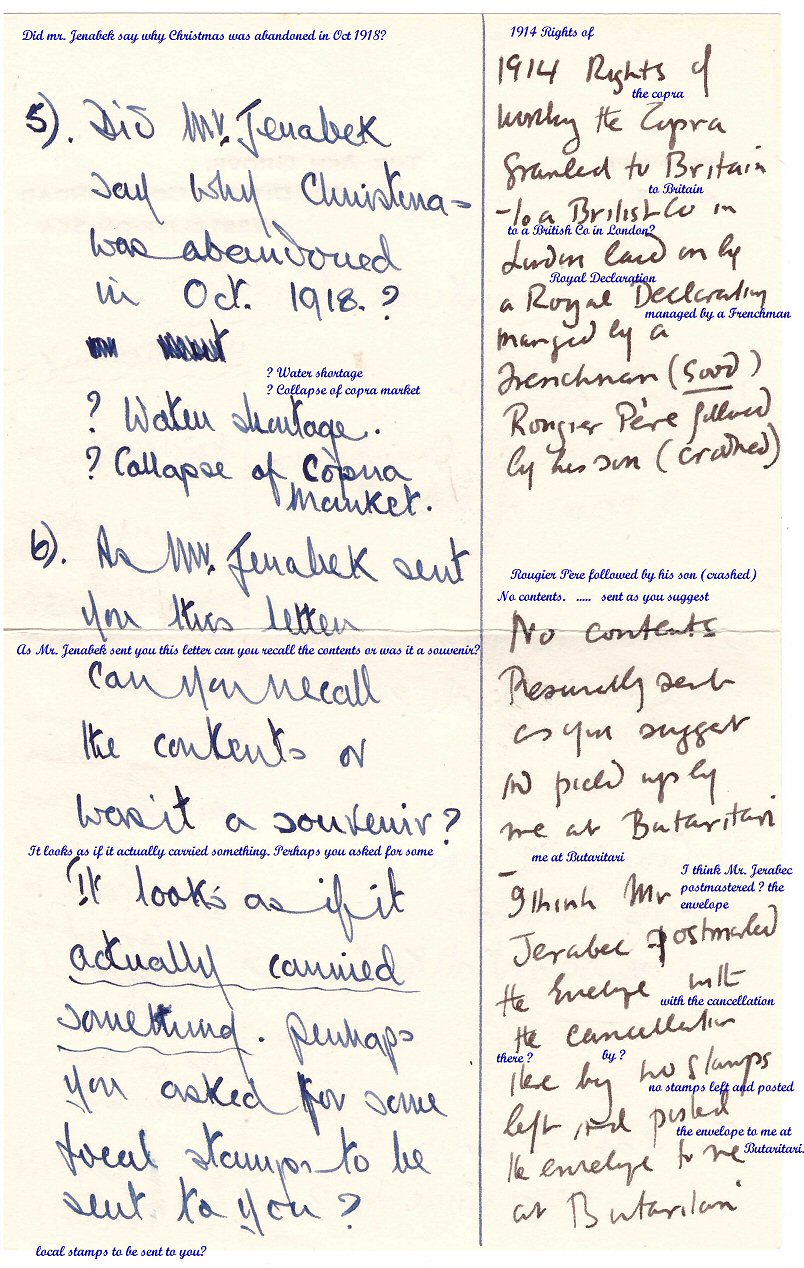 Did mr. Jenabek say why Christmas was abandoned in Oct 1918?
5). Did Mr. Jenabek
say why Christma=
was abandoned
in Oct. 1918.?
? Water shortage
? Collapse of copra market
? Water shortage.
? Collapse of Copra
Market.
6). As Mr. Jenabek sent
you this letter
As Mr. Jenabek sent you this letter can you recall the contents or was it a souvenir?
can you recall
the contents or
was it a souvenir?
It looks as if it actually carried something. Perhaps you asked for some
It looks as if it
actually carried
something. Perhaps
you asked for some
local stamps to be
sent to you?
local stamps to be sent to you?
1914 Rights of
1914 Rights of
the copra
working the Copra
granted to Britain
to Britain
- to a British Co in
to a British Co in London?
London laid on by
Royal Declaration
a Royal Declaration
managed by a Frenchman
managed by a
Frenchman (Good)
Rougier Père followed
by his son (crashed)
Rougier Père followed by his son (crashed)
No contents. ..... sent as you suggest
No contents
Presumably sent
as you suggest
and picked up by
me at Butaritari
me at Butaritari
I think Mr. Jerabec
postmastered ? the
envelope
- I think Mr
Jerabec postmarked
the Envelope with
with the cancellation
the cancellation
there ?
by ?
there by no stamps
no stamps left and posted
left and posted
the envelope to me at
Butaritari.
the envelope to me
at Butaritari